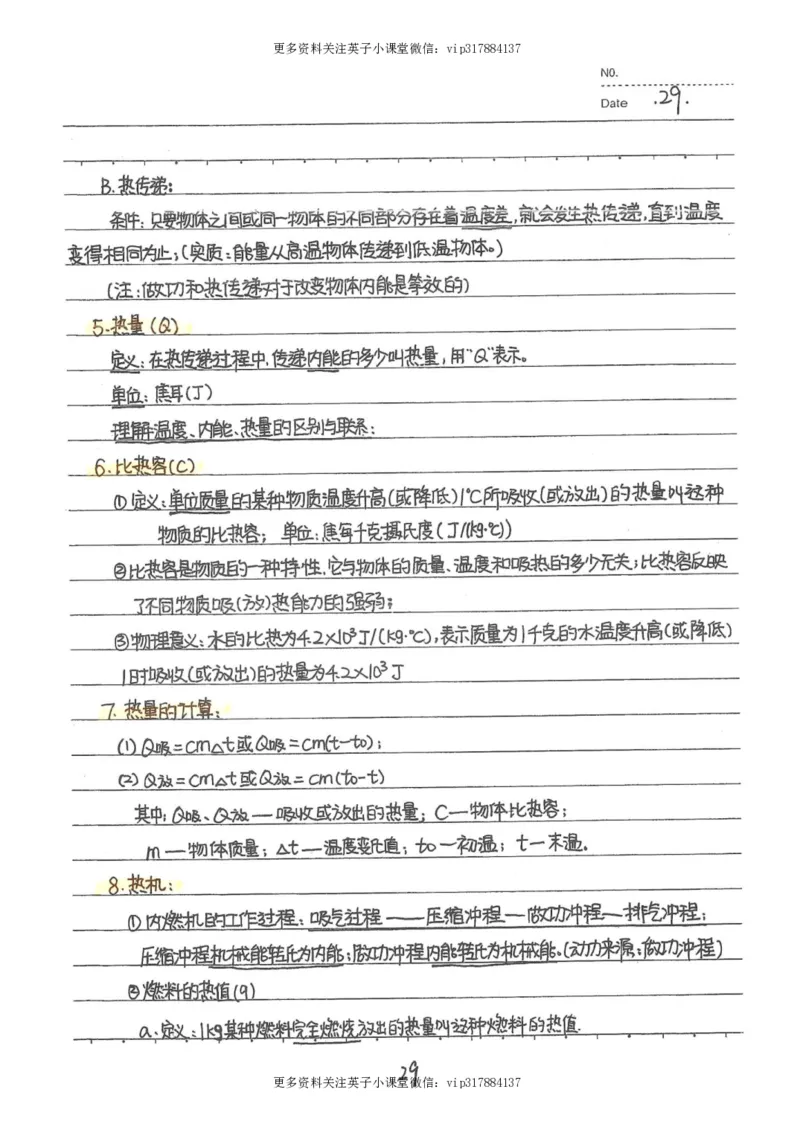 更多资料关注英子小课堂微信：vip317884137
NO.
Date .29.
B.热传递：
条件：只要物体之间或同一物体的不同部分存在着温度差，就会发生热传递，直到温度
变得相同为止；（实质：能量从高温物体传递到低温物体。）
（注：做功和热传递对于改变物体内能是等效的）
5.热量（Q）
定义：在热传递过程中，传递内能的多少叫热量，用“Q”表示。
单位：焦耳（J）
理解温度、内能、热量的区别与联系：
6.比热容（C）
①定义：单位质量的某种物质温度升高（或降低）1℃所吸收（或放出）的热量叫这种
物质的比热容；单位：焦每千克摄氏度（J/(kg·℃)）
②比热容是物质的一种特性，它与物体的质量、温度和吸热的多少无关；比热容反映
了不同物质吸（放）热能力的强弱；
③物理意义：水的比热为4.2×10³J/(kg·℃)，表示质量为1千克的水温度升高（或降低）
1时吸收（或放出）的热量为4.2×10³J
7.热量的计算：
(1) Q吸=cm△t或Q吸=cm(t-to)；
(2) Q放=cm△t或Q放=cm(to-t)
其中：Q吸、Q放—吸收或放出的热量；C—物体比热容；
m—物体质量；△t—温度变化值；to—初温；t—末温。
8.热机：
①内燃机的工作过程：吸气过程——压缩冲程—做功冲程—排气冲程；
压缩冲程机械能转化为内能；做功冲程内能转化为机械能。（动力来源：做功冲程）
②燃料的热值（q）
a.定义：1kg某种燃料完全燃烧放出的热量叫这种燃料的热值.
29
更多资料关注英子小课堂微信：vip317884137